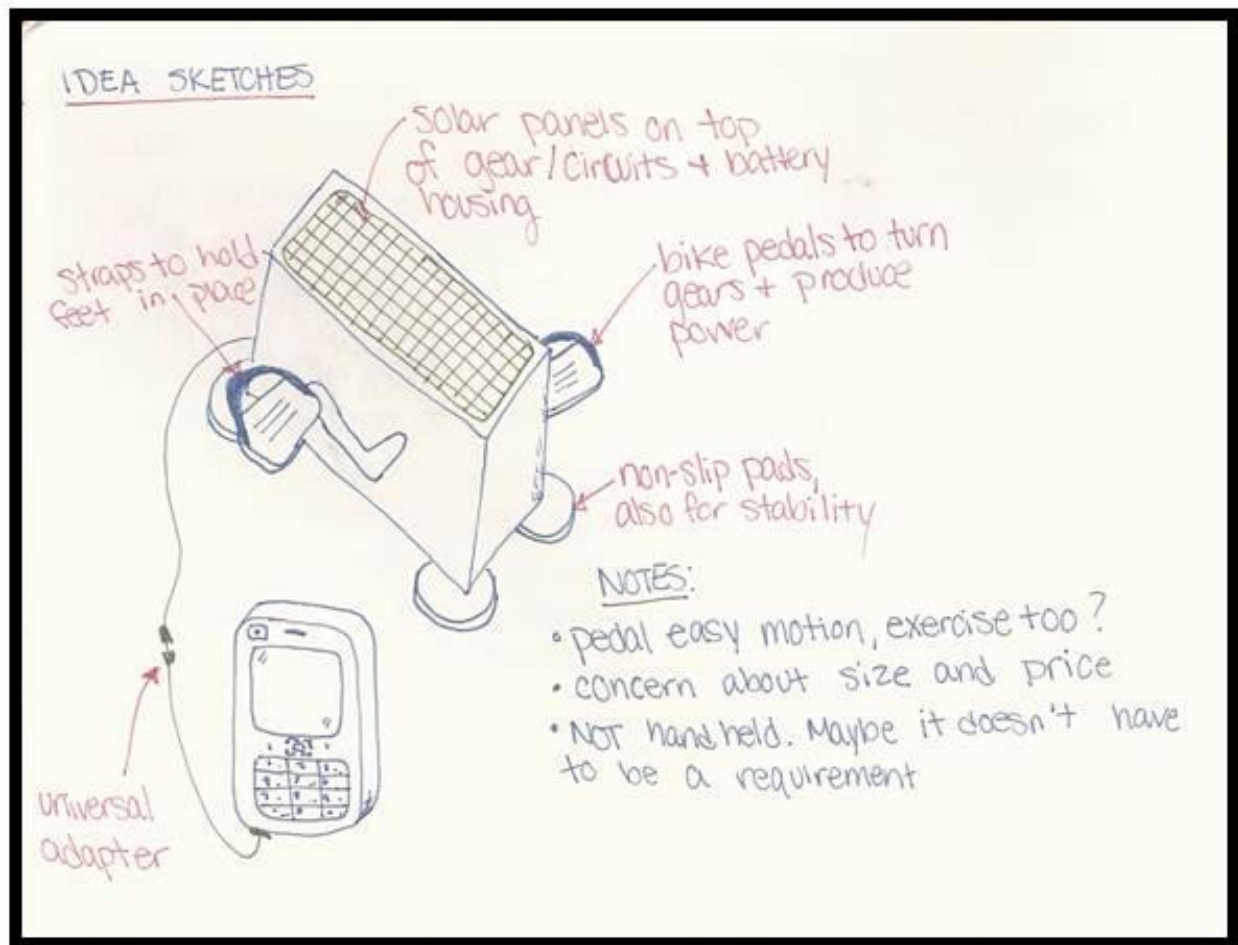 IDEA SKETCHES
solar panels on top
of gear/circuits + battery
housing
straps to hold
feet in place
bike pedals to turn
gears + produce
power
non-slip pads,
also for stability
NOTES:
• pedal easy motion, exercise too?
• concern about size and price
• NOT handheld. Maybe it doesn't have
to be a requirement
universal
adapter